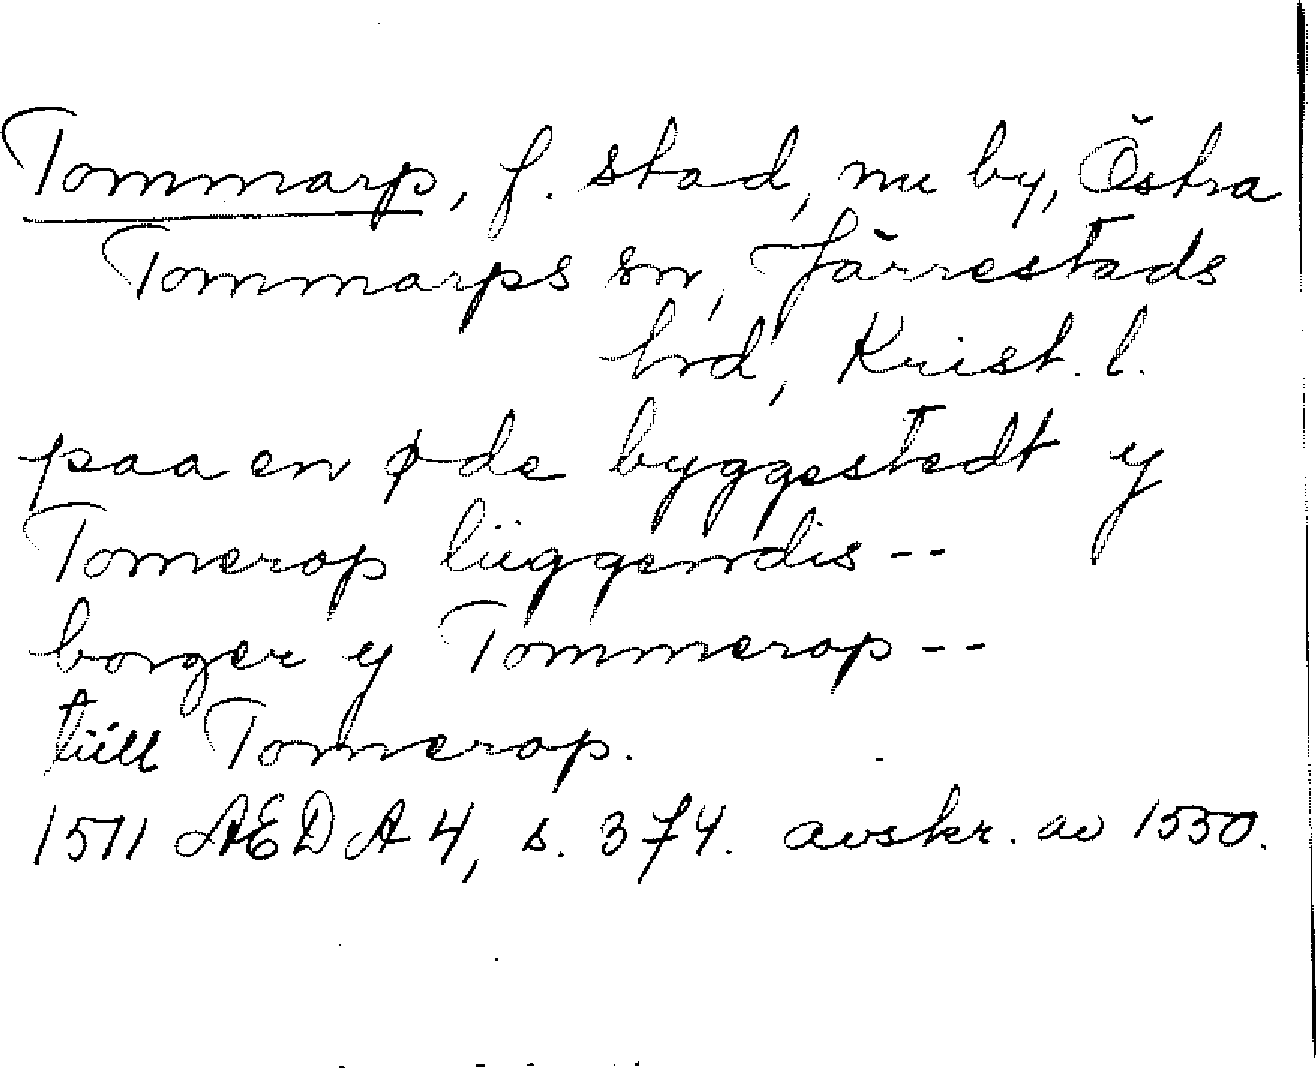 Tommarp, f. stad, nu by, Östra
Tommarps sn, Järrestads
hrd, Krist. l.
paa en øde byggestedt y
Tomerop liiggendis --
borger y Tommerop --
tiill Tomerop.
1511 AEDA 4, s. 374. avskr. av 1550.